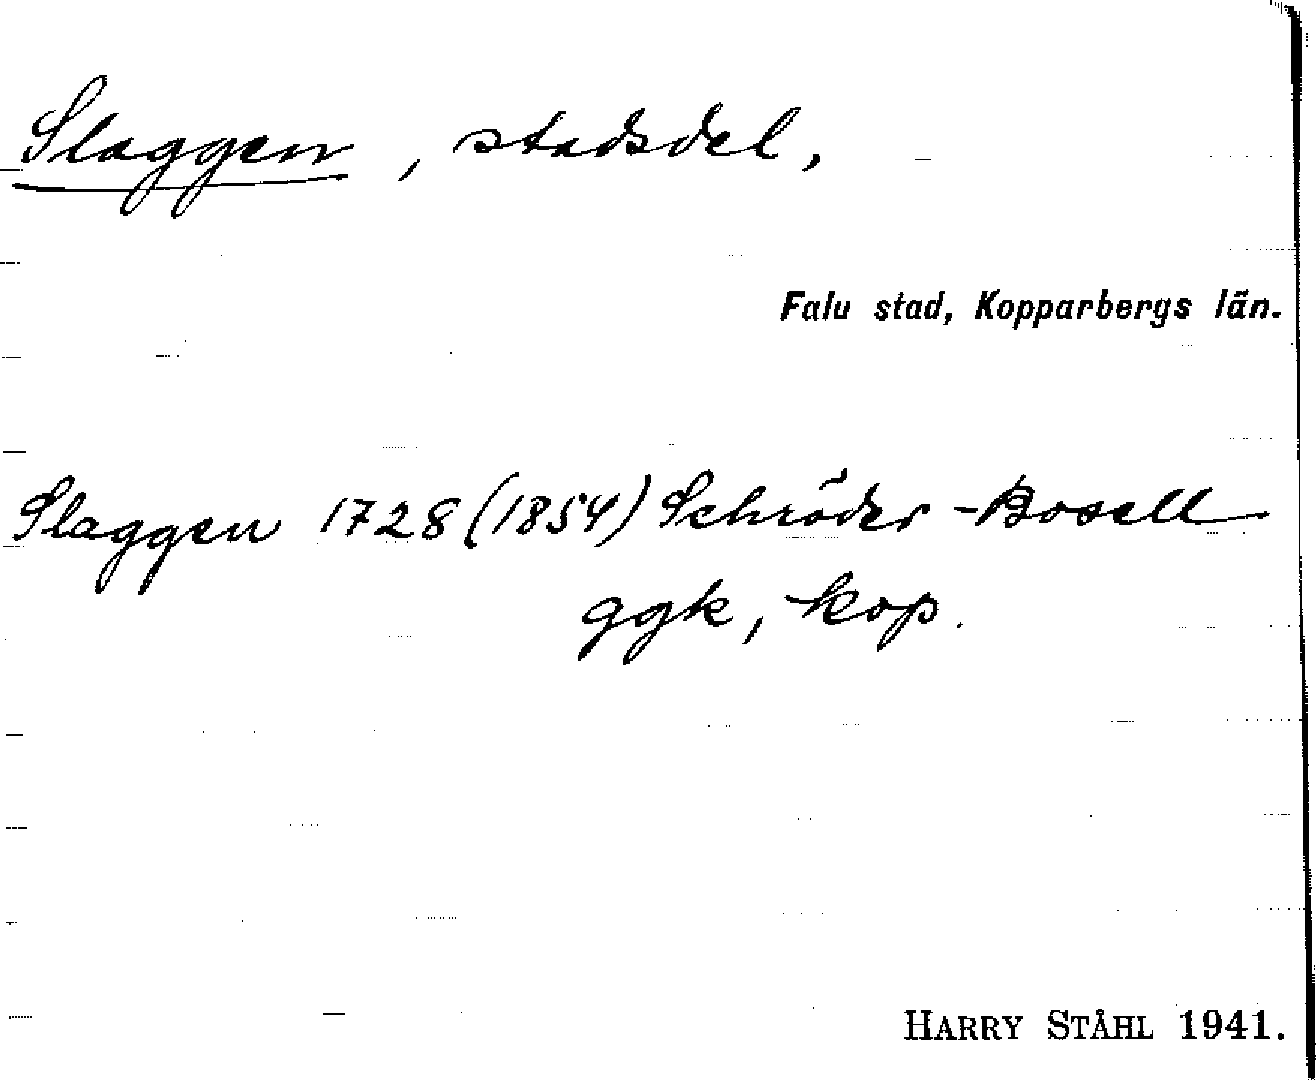 Slaggen, stadsdel,
Falu stad, Kopparbergs län.
Slaggen 1728 (1854) Schröder-Bosell
ggk, kop.
HARRY STÅHL 1941.